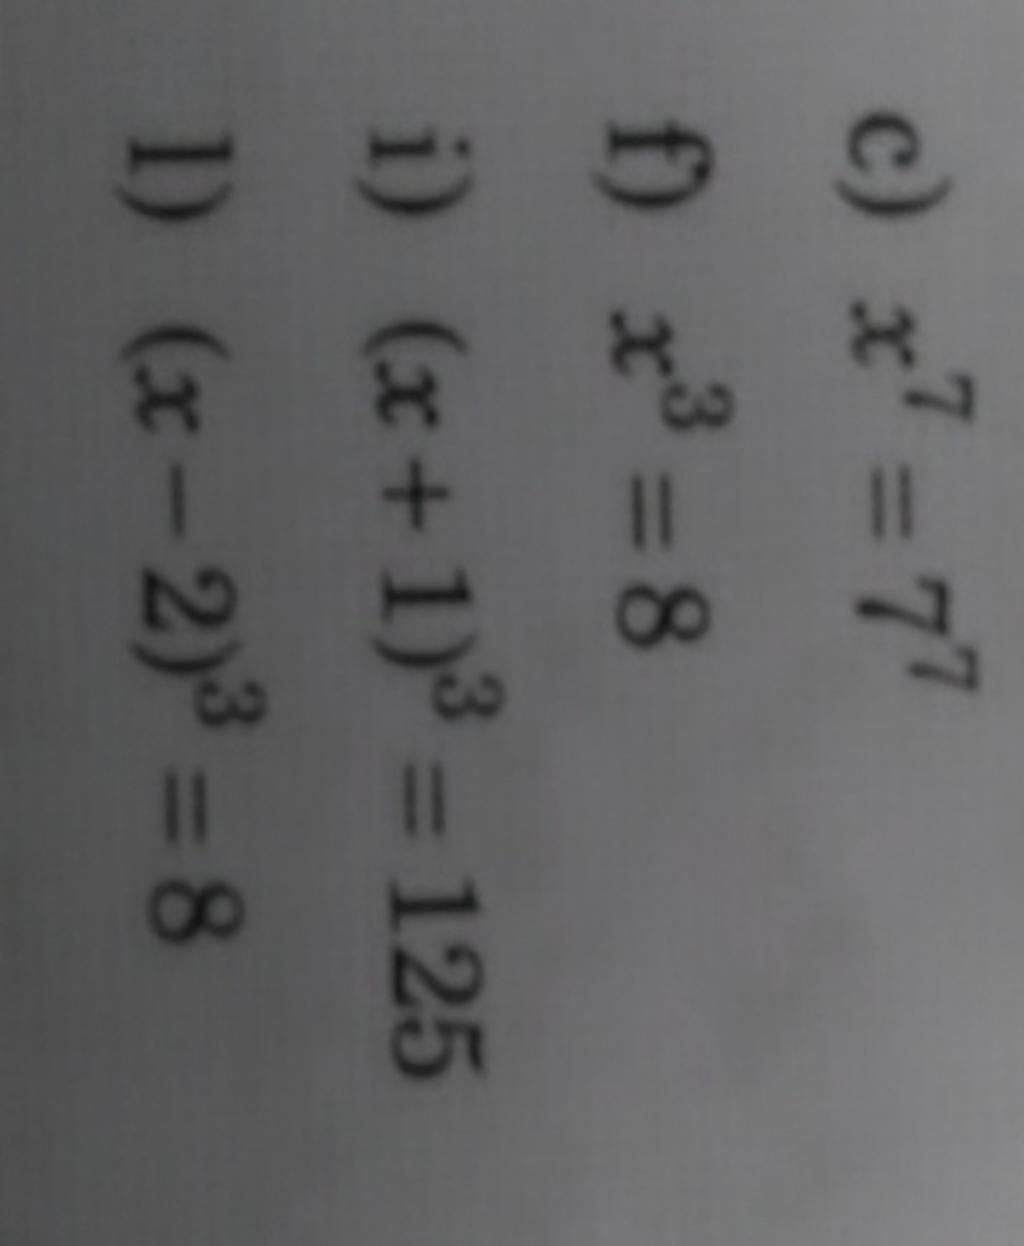 c) x⁷ = 7⁷
f) x³ = 8
i) (x + 1)³ = 125
l) (x − 2)³ = 8